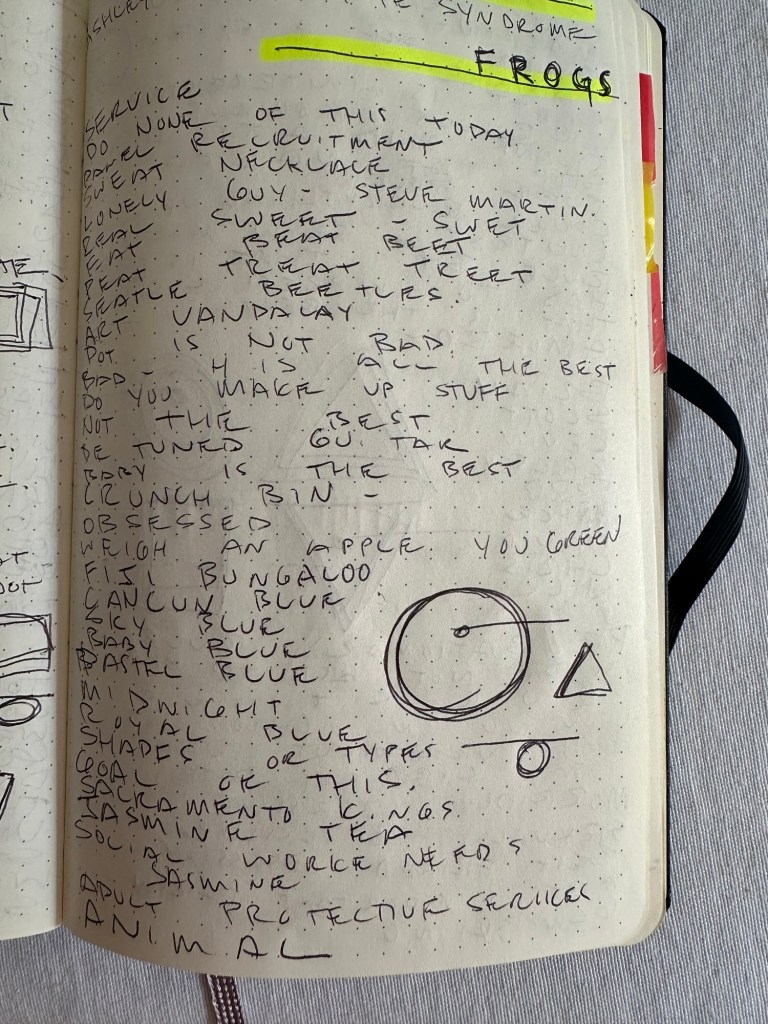 ASHLEY
SYNDROME
FROGS
SERVICE
DO NONE OF THIS TODAY.
PANEL RECRUITMENT
SWEAT NECKLACE
LONELY GUY - STEVE MARTIN.
REAL SWEET - SWET
EAT BEAT BEET
PEAT TREAT TREET
SEATLE BEETLES.
ART VANDALAY
DOT IS NOT BAD.
BAD - H IS ALL THE BEST
DO YOU MAKE UP STUFF
NOT THE BEST
DE TUNED GUITAR
BABY IS THE BEST
CRUNCH BIN -
OBSESSED
WEIGH AN APPLE. YOU GREEN
FIJI BUNGALOO
CANCUN BLUE
SKY BLUE
BABY BLUE
PASTEL BLUE
MIDNIGHT
ROYAL BLUE
SHADES OR TYPES
GOAL OF THIS.
SACRAMENTO KINGS.
JASMINE TEA
SOCIAL WORKE NEEDS
JASMINE
ADULT PROTECTIVE SERVICES
ANIMAL